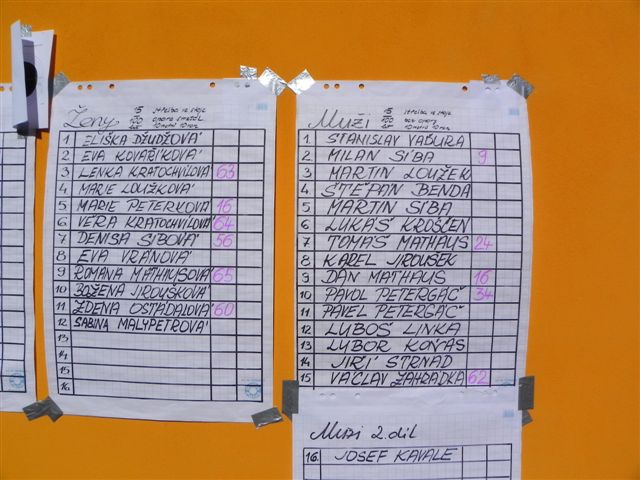 Ženy
1 ELIŠKA DŽUDŽOVÁ
2 EVA KOVAŘÍKOVÁ
3 LENKA KRATOCHVÍLOVÁ 63
4 MARIE LOUŽKOVÁ
5 MARIE PETERKOVÁ 15
6 VĚRA KRATOCHVÍLOVÁ 64
7 DENISA SIBOVÁ 56
8 EVA VRANOVÁ
9 ROMANA MATHAUSOVÁ 65
10 BOŽENA JIROUŠKOVÁ
11 ZDENA OSTÁDALOVÁ 60
12 SABINA MALYPETROVÁ
13
14
15
16.
Muži
1. STANISLAV VABURA
2. MILAN SIBA 9
3. MARTIN LOUŽEK
4 ŠTĚPÁN BENDA
5 MARTIN SIBA
6 LUKÁŠ KROŠČEN
7 TOMÁŠ MATHAUS 24
8 KAREL JIROUŠEK
9. DAN MATHAUS 16
10 PAVOL PETERGÁČ 34
11 PAVEL PETERGÁČ
12 LUBOŠ LINKA
13 LUBOR KONÁS
14 JIŘÍ STRNAD
15 VÁCLAV ZAHRÁDKA 62
Muži 2.díl
16. JOSEF KAVALE